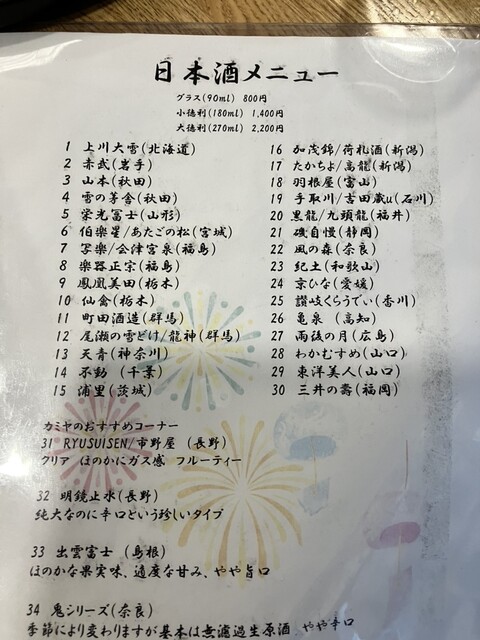 日本酒メニュー
グラス(90ml) 800円
小徳利(180ml) 1,400円
大徳利(270ml) 2,200円
1 上川大雪(北海道)
2 赤武(岩手)
3 山本(秋田)
4 雪の茅舎(秋田)
5 栄光冨士(山形)
6 伯楽星/あたごの松(宮城)
7 写楽/会津宮泉(福島)
8 楽器正宗(福島)
9 鳳凰美田(栃木)
10 仙禽(栃木)
11 町田酒造(群馬)
12 尾瀬の雪どけ/龍神(群馬)
13 天青(神奈川)
14 不動 (千葉)
15 浦里(茨城)
16 加茂錦/荷札酒(新潟)
17 たかちよ/高龍(新潟)
18 羽根屋(富山)
19 手取川/吉田蔵u(石川)
20 黒龍/九頭龍(福井)
21 磯自慢(静岡)
22 風の森(奈良)
23 紀土(和歌山)
24 京ひな(愛媛)
25 讃岐くらうでぃ(香川)
26 亀泉 (高知)
27 雨後の月(広島)
28 わかむすめ(山口)
29 東洋美人(山口)
30 三井の壽(福岡)
カミヤのおすすめコーナー
31 RYUSUISEN/市野屋 (長野)
クリア ほのかにガス感 フルーティー
32 明鏡止水(長野)
純大なのに辛口という珍しいタイプ
33 出雲富士 (島根)
ほのかな果実味、適度な甘み、やや旨口
34 鬼シリーズ(奈良)
季節により変わりますが基本は無濾過生原酒 やや辛口